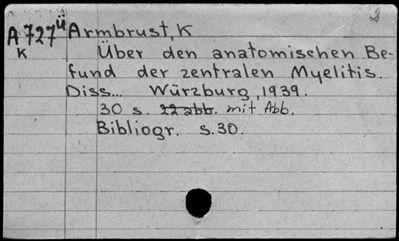 A 727 ü Armbrust, K
K Über den anatomischen Be-
fund der zentralen Myelitis.
Diss... Würzburg, 1939.
30 s. 22 abb. mit Abb.
Bibliogr. s. 30.